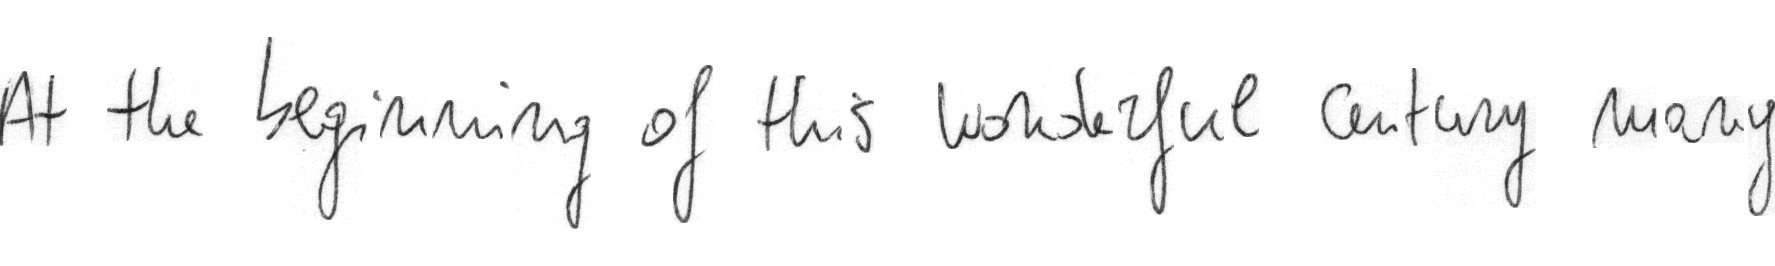 At the beginning of this wonderful century many